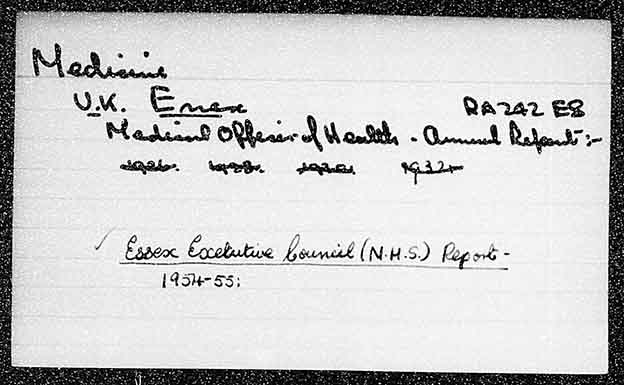 Medicine
U.K. Essex RA242 E8
Medical Officer of Health - Annual Report :-
1926. 1928. 1930. 1932-
Essex Executive Council (N.H.S.) Report -
1954-55: